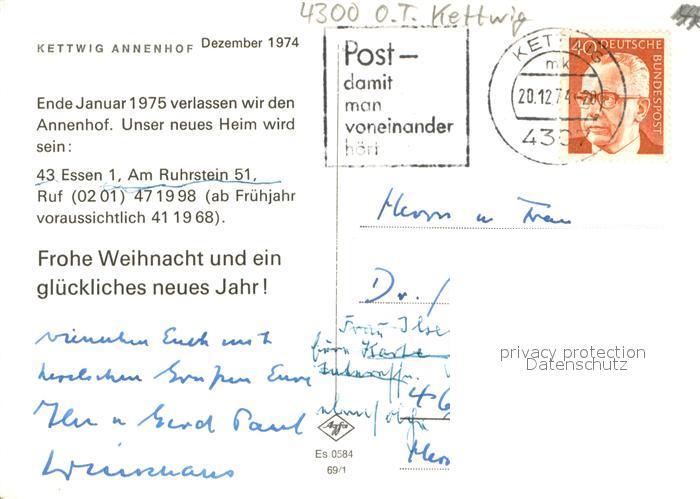 4300 O.T. Kettwig
KETTWIG ANNENHOF Dezember 1974
Ende Januar 1975 verlassen wir den
Annenhof. Unser neues Heim wird
sein:
43 Essen 1, Am Ruhrstein 51,
Ruf (02 01) 47 19 98 (ab Frühjahr
voraussichtlich 41 19 68).
Frohe Weihnacht und ein
glückliches neues Jahr!
wünschen Euch mit
herzlichen Grüßen Eure
Ilse u Gerd Paul
Post –
damit
man
voneinander
hört
KETTWIG
mk
20.12.74-20
4307
40 DEUTSCHE
BUNDESPOST
Herrn u Frau
Dr.
Frau Ilse
Karte
46
privacy protection
Datenschutz
Agfa
Es 0584
69/1